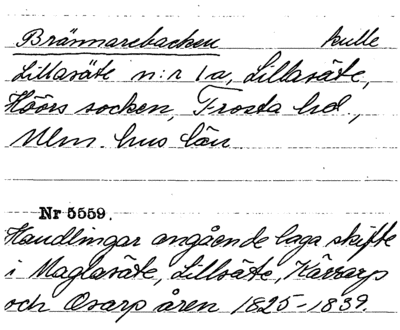 Brännarebacken kulle
Lillasäte n:r 1a, Lillasäte,
Höörs socken, Frosta hd,
Mlm. hus län.
Nr 5559.
Handlingar angående laga skifte
i Maglasäte, Lillsäte, Kärrarp
och Osarp åren 1825-1839.